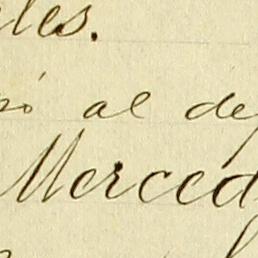 les.
só al de
Merced